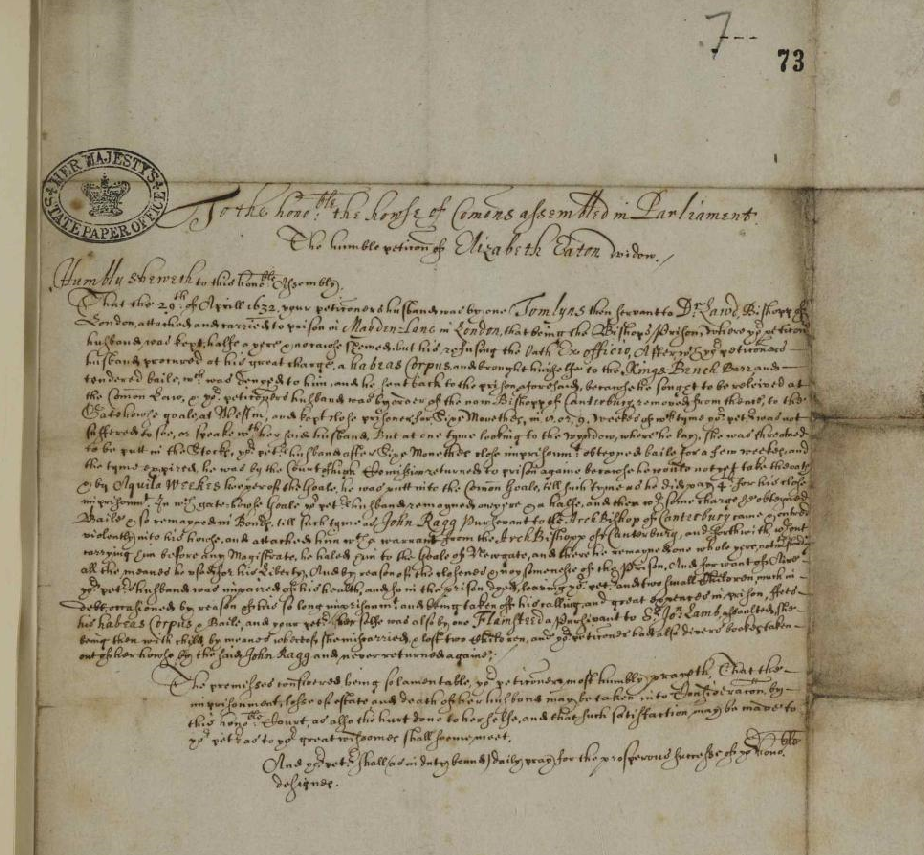 7--
73
HER MAJESTY'S
STATE PAPER OFFICE
To the hono:ble the howse of Comons assembled in Parliament
The humble peticon of Elizabeth Eaton widow./
Humbly sheweth to this hono:ble Assembly.
That the 29th of Aprill 1632, your petitioners husband was by one Tomlyns then servant to Dr Lawd, Bishopp of
London, attached and carried to prison in Mayden-lane in London, that being the Bishops Prison, where yor petition
husband was kept halfe a yere & no cause shewed, but his refusing the oath Ex officio, After wch yor petitioners
husband procured at his great charge, a habeas Corpus, and brought himselfe to the Kings Bench Barr, and
tendered baile, wch was denyed to him, and he sent back to the prison aforesaid, because he sought to be releived at
the Comon Law, & yor petitioners husband was by order of the now Bishopp of Canterbury, removed from thence, to the
Gatehowse goale, at Westm, and kept close prisoner, for Sixe Monethes, in 8. or 9. weekes of wch tyme yor petr was not
suffered to see, or speake wth her said husband, But at one tyme looking to the wyndow, where he lay, she was threatned
to be putt in the Stocks, yor petrs husband after Sixe Monethes close imprisonmt obteyned baile for a fewe weekes, and
the tyme expired, he was by the Court of high Comission returned to prison againe because he would not yet take the oath
& by Aquila Weekes keeper of the Goale, he was putt into the Comon Goale, till such tyme as he did pay 4li for his close
imprisonmt In wch gatehowse Goale yor petrs husband remayned a yere & a halfe, and then wth some charge he obteyned
Baile & so remayned in Bonds, till such tyme as John Ragg Pursevant to the Arch Bishop of Canterbury came & entred
violently into his howse, and attached him wth a warrant from the Arch Bishopp of Canterbury, and forthwith wthout
carrying him before any Magistrate, he haled him to the Goale of Newgate, and there he remayned one whole yere, notwthstand
all the meanes he used for his Liberty, And by reason of the closenes & noysomenes of the Prison, And for want of Aire
yor petrs husband was impaired of his health, and so in the prison dyed, leaving yor petr and two small children, much in
debt, occasioned by reason of his so long imprisonmt and being taken off his calling, and great expences in prison, ffees
his habeas Corpus & Baile, and your petr her selfe was also by one Flamsted a Pursivant to Sr Jo: Lamb, assaulted, she
being then with child, by meanes whereof she miscarried, & lost two children, and yor petitioner had also divers bookes taken
out of her howse by the said John Ragg and never returned againe;
The premisses considered being so lamentable, yor petitioner most humbly prayeth, That the
imprisonment, losse of estate and death of her husband may be taken into Consideracon, by
this hono:ble Court, as also the hurt done to her selfe, and that such satisfaction may be made to
yor petr as to yor great wisdomes shall seeme meet.
And yor petr shall (as in duty bound) daily pray for the prosperous successe of yor hono:ble
designes.